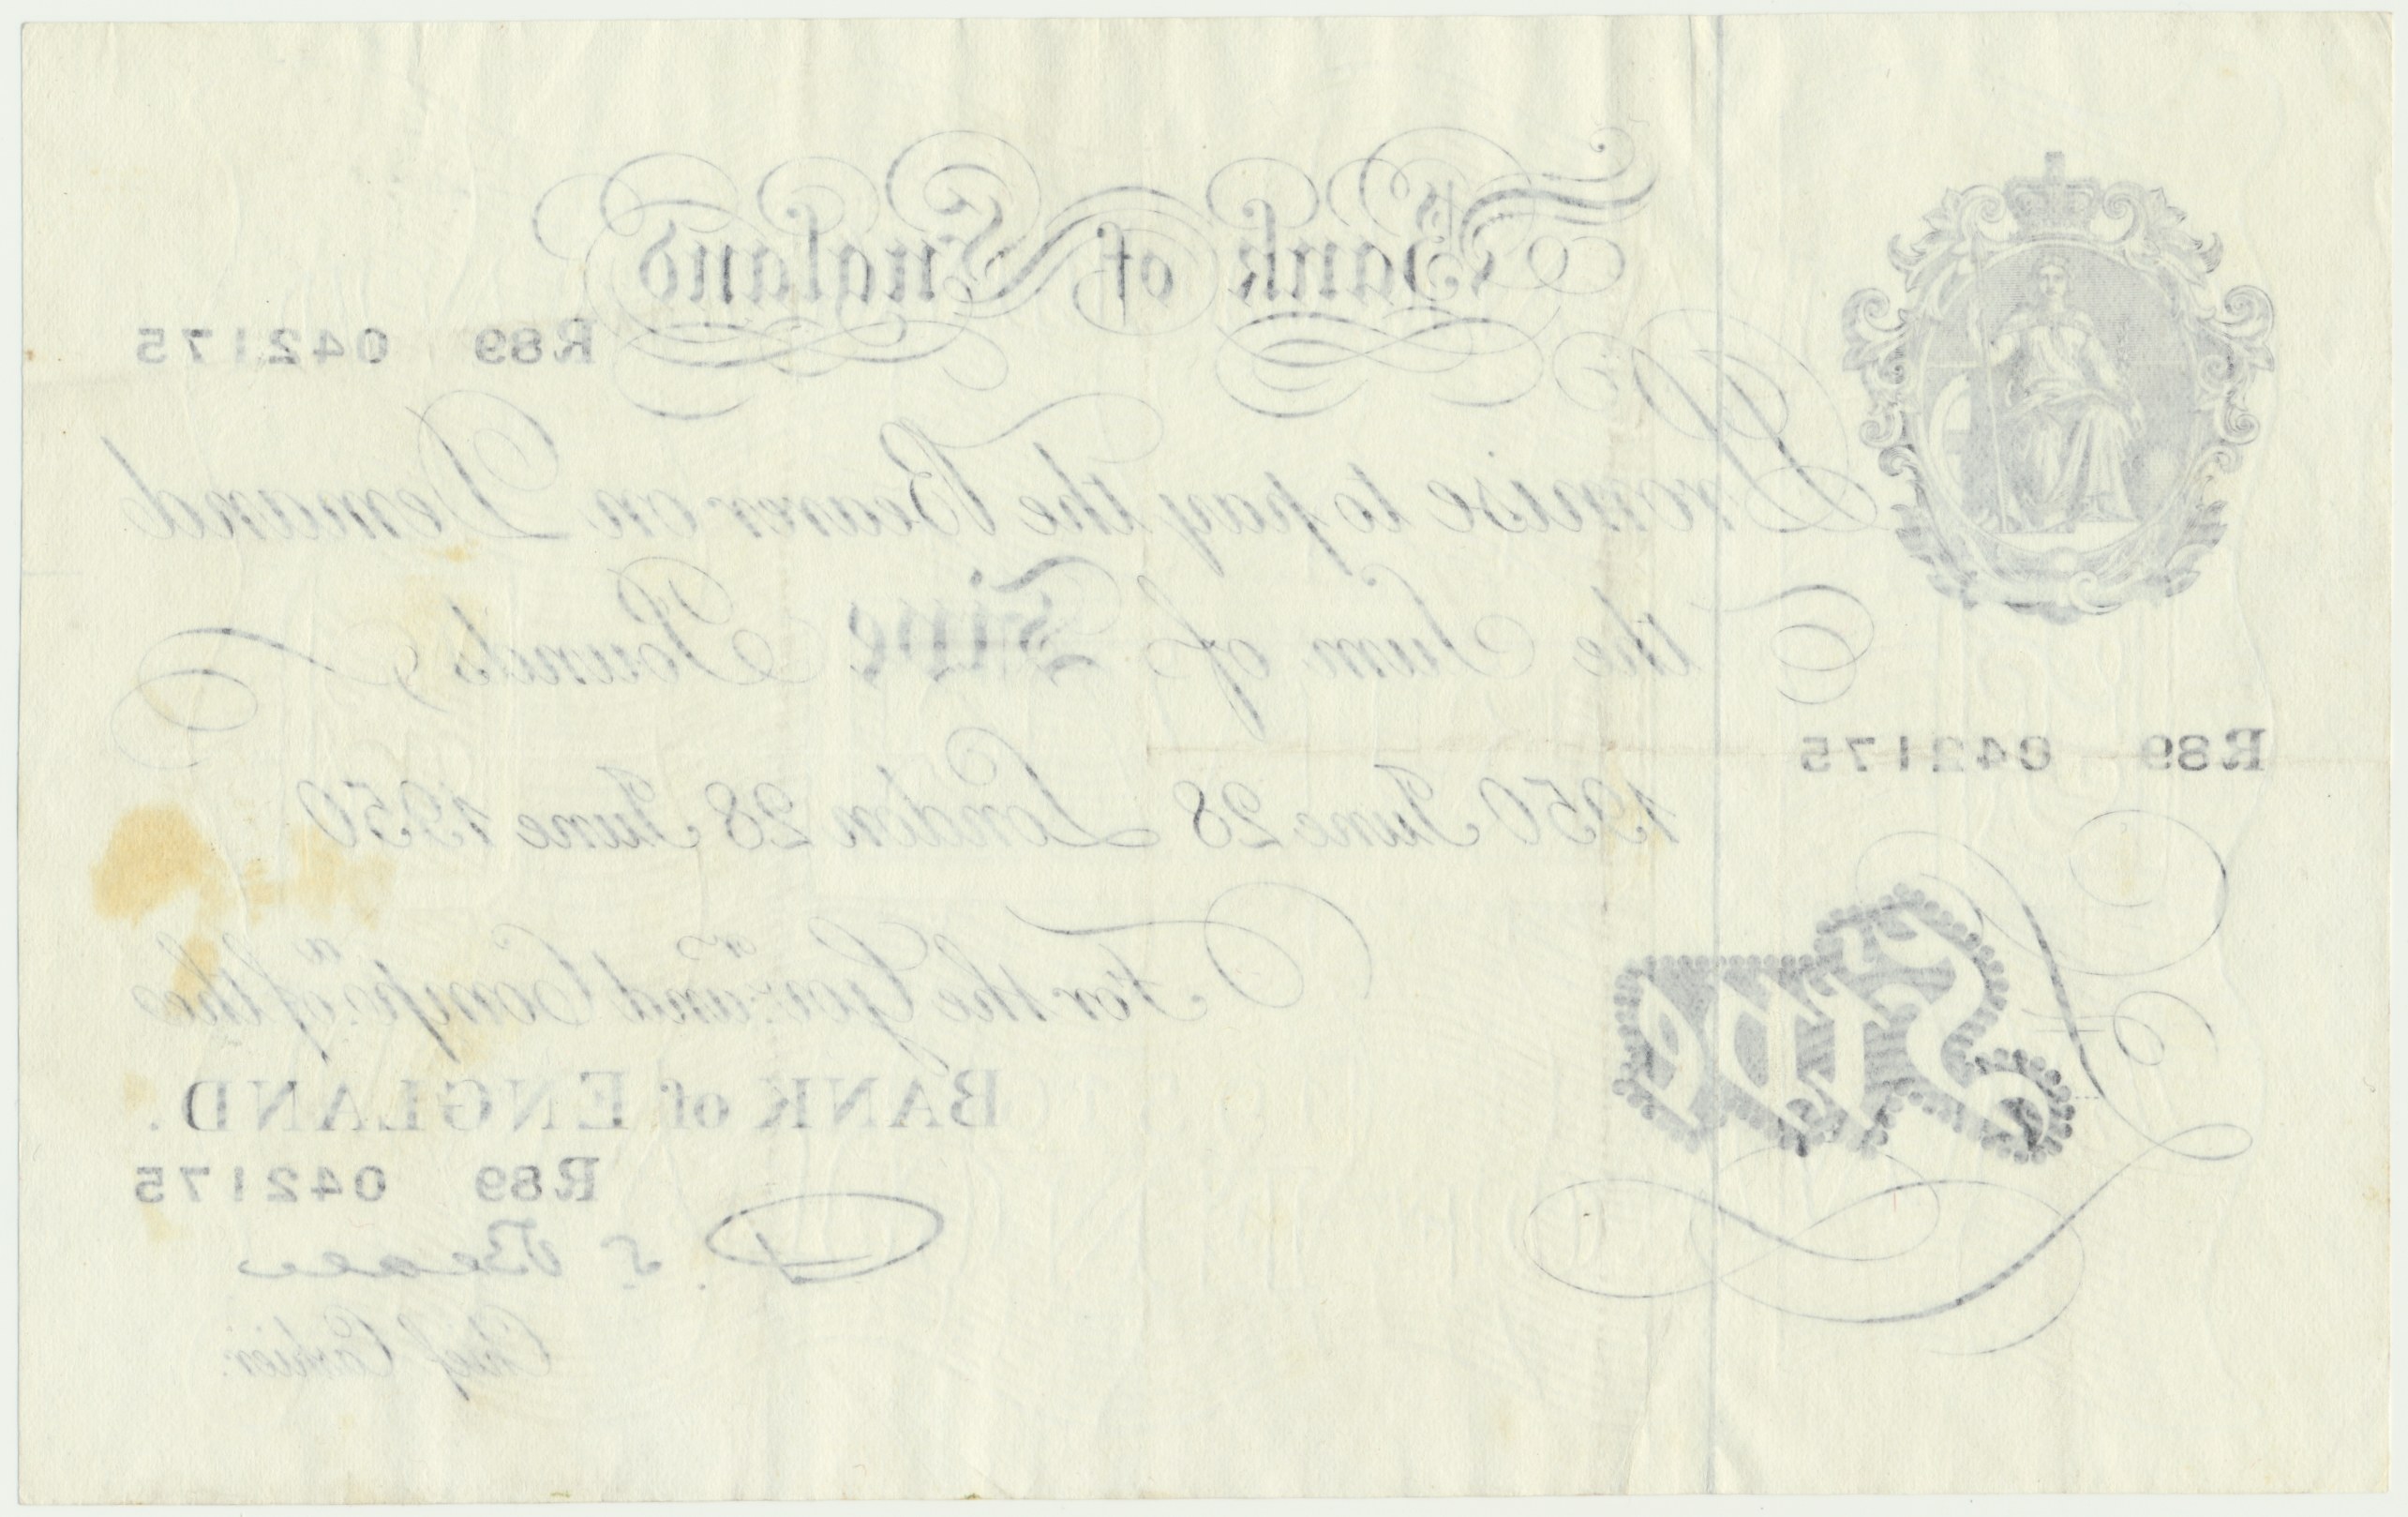 Bank of England
R89 042175
Promise to pay the Bearer on Demand
the Sum of Five Pounds
R89 042175
1950 June 28 London 28 June 1950
For the Govr. and Compa. of the
BANK of ENGLAND.
Five
R89 042175
P. S. Beale
Chief Cashier.